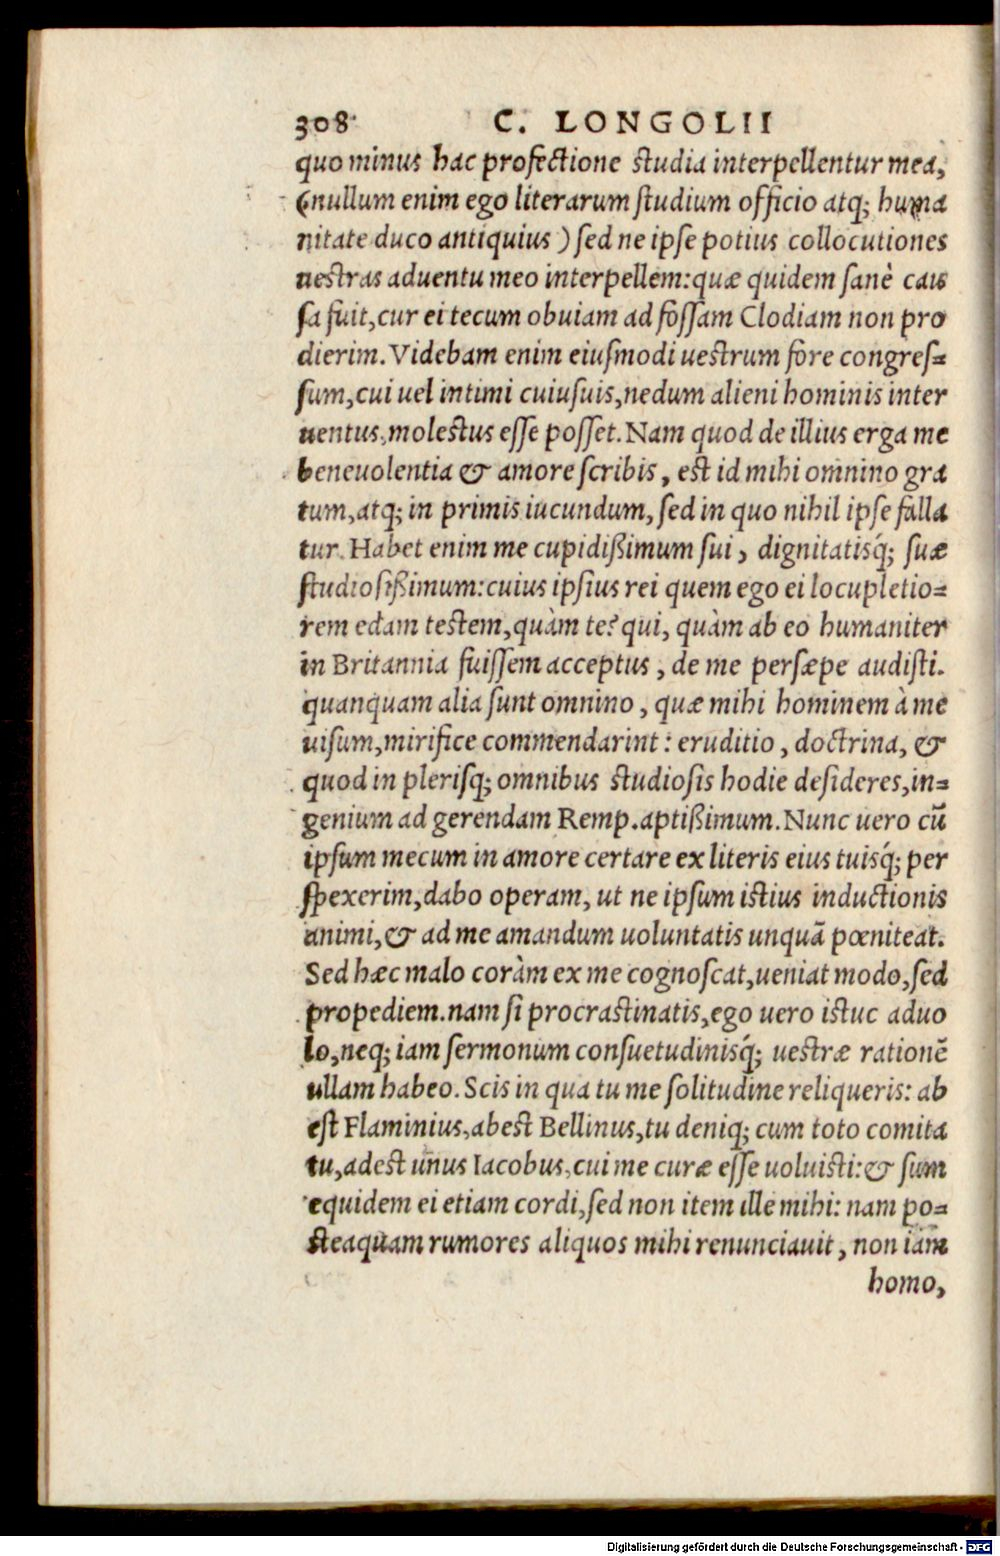 308 C. LONGOLII
quo minus hac profectione studia interpellentur mea,
(nullum enim ego literarum studium officio atq; huma
nitate duco antiquius) sed ne ipse potius collocutiones
uestras aduentu meo interpellem: quæ quidem sanè cau
sa fuit, cur ei tecum obuiam ad fossam Clodiam non pro
dierim. Videbam enim eiusmodi uestrum fore congres=
sum, cui uel intimi cuiusuis, nedum alieni hominis inter
uentus, molestus esse posset. Nam quod de illius erga me
beneuolentia & amore scribis, est id mihi omnino gra
tum, atq; in primis iucundum, sed in quo nihil ipse falla
tur. Habet enim me cupidißimum sui, dignitatisq́; suæ
studiosißimum: cuius ipsius rei quem ego ei locupletio=
rem edam testem, quàm te? qui, quàm ab eo humaniter
in Britannia fuissem acceptus, de me persæpe audisti.
quanquam alia sunt omnino, quæ mihi hominem à me
uisum, mirifice commendarint: eruditio, doctrina, &
quod in plerisq; omnibus studiosis hodie desideres, in=
genium ad gerendam Remp. aptißimum. Nunc uero cū
ipsum mecum in amore certare ex literis eius tuisq́; per
spexerim, dabo operam, ut ne ipsum istius inductionis
animi, & ad me amandum uoluntatis unquā pœniteat.
Sed hæc malo coràm ex me cognoscat, ueniat modo, sed
propediem. nam si procrastinatis, ego uero istuc aduo
lo, neq; iam sermonum consuetudinisq́; uestræ rationē
ullam habeo. Scis in qua tu me solitudine reliqueris: ab
est Flaminius, abest Bellinus, tu deniq; cum toto comita
tu, adest unus Iacobus, cui me curæ esse uoluisti: & sum
equidem ei etiam cordi, sed non item ille mihi: nam po=
steaquam rumores aliquos mihi renunciauit, non iam
homo,
Digitalisierung gefördert durch die Deutsche Forschungsgemeinschaft - DFG